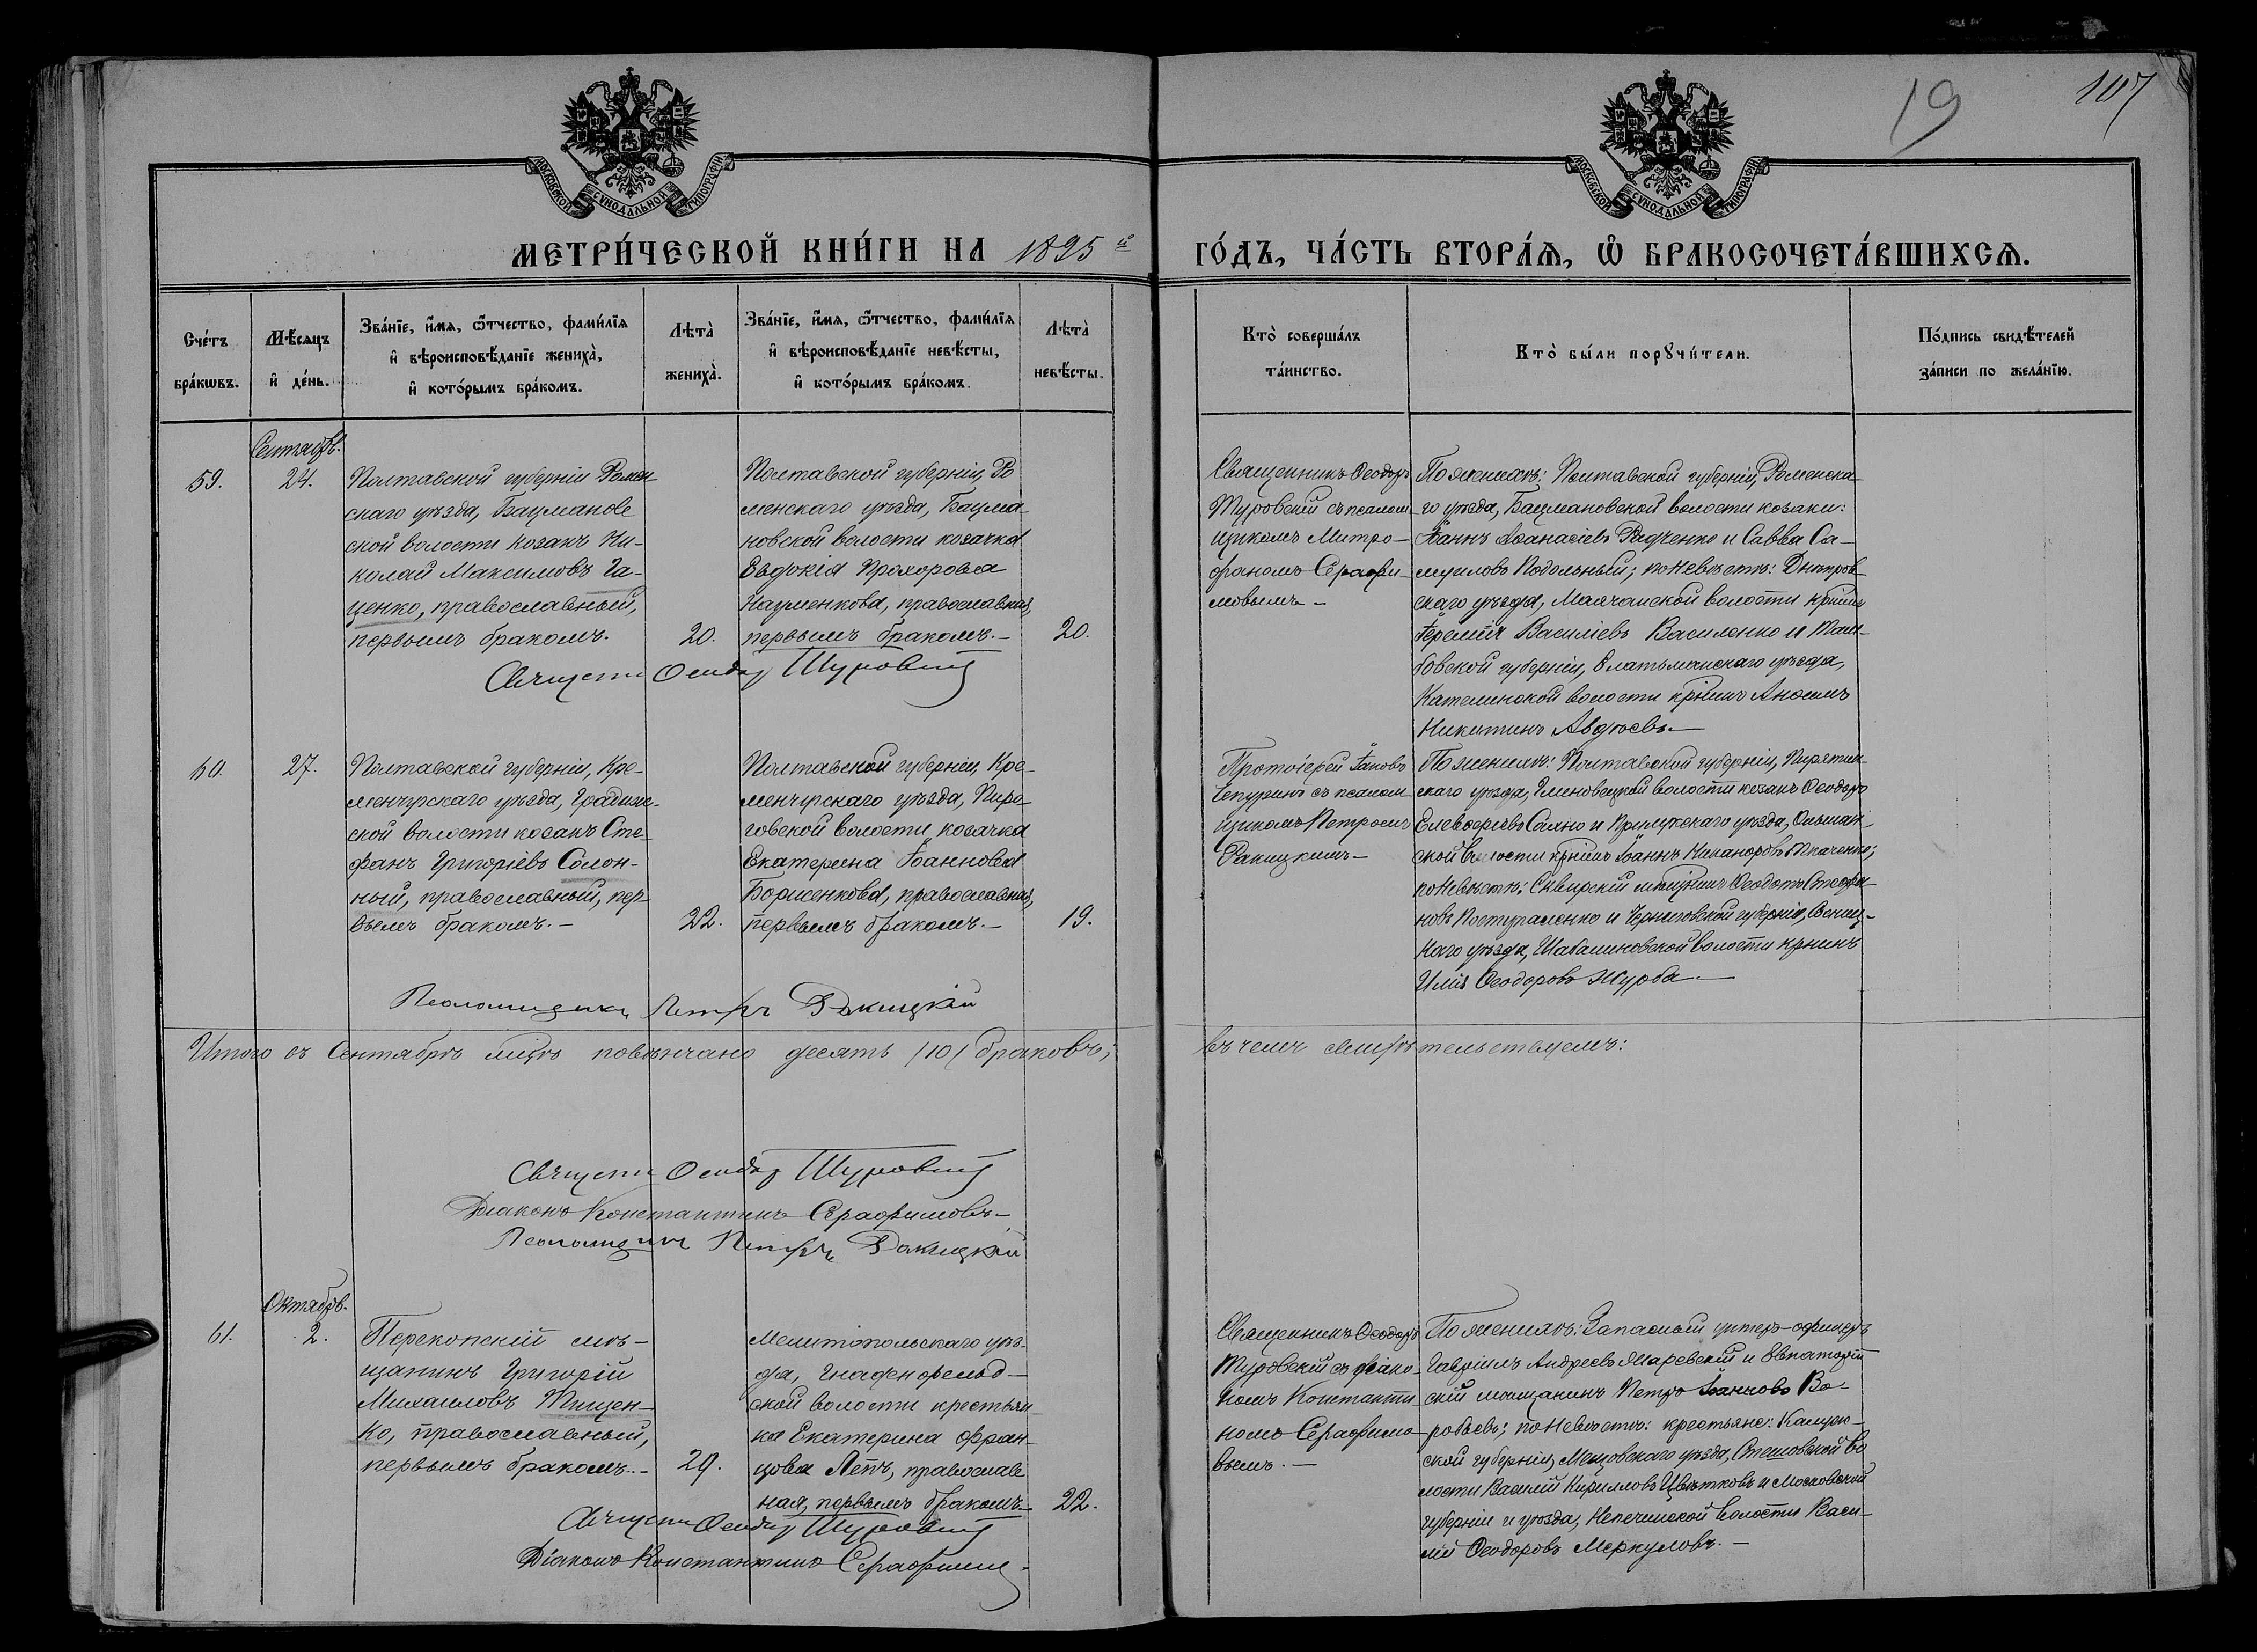 19
107
МОСКОВСКОЙ СѴНОДАЛЬНОЙ ТИПОГРАФІИ
МОСКОВСКОЙ СѴНОДАЛЬНОЙ ТИПОГРАФІИ
МЕТРИ́ЧЕСКОЙ КНИ́ГИ НА 1895й ГО́ДЪ, ЧА́СТЬ ВТОРА́Я, Ѿ БРАКОСОЧЕТА́ВШИХСЯ.
Сче́тъ
бра́кѡвъ.
Мѣ́сяцъ
и҆ де́нь.
Зва́нїе, и҆́мя, ѻ҆́тчество, фами́лїя
и҆ вѣроисповѣ́данїе жениха̀,
и҆ кото́рымъ бра́комъ.
Лѣта̀
жениха̀.
Зва́нїе, и҆́мя, ѻ҆́тчество, фами́лїя
и҆ вѣроисповѣ́данїе невѣ́сты,
и҆ кото́рымъ бра́комъ.
Лѣта̀
невѣ́сты.
Кто̀ соверша́лъ
та́инство.
Кто̀ бы́ли порꙋчи́тели.
По́дпись свидѣ́телей
за́писи по жела́нїю.
59.
Сентябрь.
24.
Полтавской губерніи Ромен
скаго уѣзда, Бацманов
ской волости козакъ Ни-
колай Максимовъ Га-
ценко, православный,
первымъ бракомъ.
20.
Полтавской губерніи, Ро
менскаго уѣзда, Бацма
новской волости козачка
Евдокія Прохорова
Науменкова, православная,
первымъ бракомъ.-
20.
Священникъ Ѳеодоръ
Туровскій съ псалом
щикомъ Митро-
фаномъ Серафи-
мовымъ -
По женихѣ: Полтавской губерніи, Роменска-
го уѣзда, Бацмановской волости козаки:
Іоаннъ Аѳанасіевъ Радченко и Савва Са-
муиловъ Подольный; по невѣстѣ: Днѣпров
скаго уѣзда, Маячанской волости крнинъ
Іеремія Василіевъ Василенко и Там-
бовской губерніи, Елатьманскаго уѣзда,
волости крнинъ
Никитинъ Авдѣевъ.-
Священн Ѳеодор Туровскій
60.
27.
Полтавской губерніи, Кре-
менчугскаго уѣзда, Градиж-
ской волости козакъ Сте-
фанъ Григоріевъ Солон-
ный, православный, пер-
вымъ бракомъ.-
22.
Полтавской губерніи, Кре-
менчугскаго уѣзда, Пиро
говской волости, козачка
Екатерина Іоаннова
Борисенкова, православная,
первымъ бракомъ.-
19.
Протоіерей Іаковъ
Чепуринъ съ псалом
щикомъ Петромъ
Ракицкимъ-
По женихѣ: Полтавской губерніи, Пирятин-
скаго уѣзда, волости козакъ Ѳеодоръ
Елевѳеріевъ и Прилукскаго уѣзда, Ольшан-
ской волости крнинъ Іоаннъ Никаноровъ Ткаченко;
по невѣстѣ: Сквирскій мѣщнинъ Ѳеодотъ Стефа
новъ и Черниговской губерніи,
каго уѣзда, Шабалиновской волости крнинъ
Илія Ѳеодоровъ Журба.-
Псаломщикъ Петръ Ракицкій
Итого въ Сентябрѣ мцѣ повѣнчано десять /10/ браковъ; въ чемъ свидѣтельствуемъ:
Священн Ѳеодор Туровскій
Діаконъ Константинъ Серафимовъ-
Псаломщикъ Петръ Ракицкій
61.
Октябрь.
2.
Перекопскій мѣ-
щанинъ Григорій
Михаиловъ Тищен-
ко, православный,
первымъ бракомъ.-
29.
Мелитопольскаго уѣз-
да, Гнаденфельд-
ской волости крестьян
ка Екатерина Фран-
цова православ
ная, первымъ бракомъ-
22.
Священникъ Ѳеодоръ
Туровскій съ діако-
номъ Константи-
номъ Серафимо
вымъ.-
По женихѣ: Запасный унтеръ-офицеръ
Гавріилъ Андреевъ и Евпаторій
скій мѣщанинъ Петръ Іоанновъ Во-
робьевъ; по невѣстѣ: крестьяне: Калуж-
ской губерніи, Мещовскаго уѣзда, во
лости Василій Кирилловъ Цвѣтковъ и Московской
губерніи и уѣзда, волости Васи-
лій Ѳеодоровъ Меркуловъ.-
Священн Ѳеодор Туровскій
Діаконъ Константинъ Серафимов